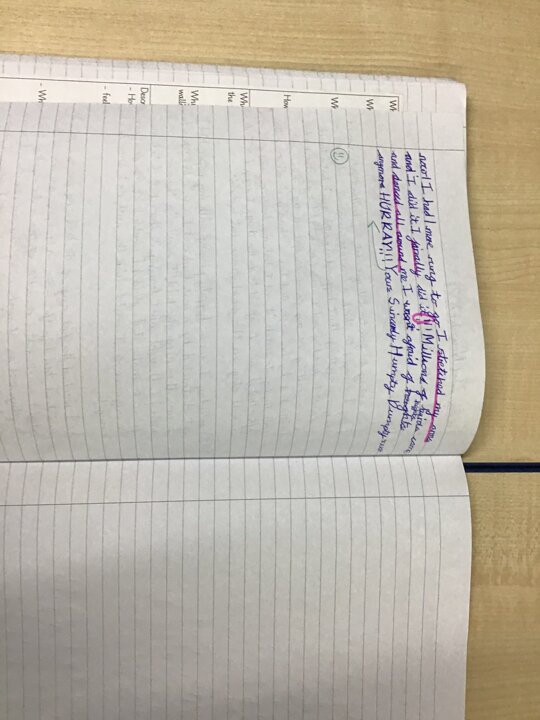 now! I had 1 more rung to go I stretched my arms
and I did it I finally did it!!! Millions of birds came
and danced all around me I wasn't afraid of heights
anymore HURRAY!!! Yours Sincerely Humpty Dumpty
Wh
Wh
Wh
How
Wh
the
Wha
walli
Descr
- Ho
- feel
- Wh